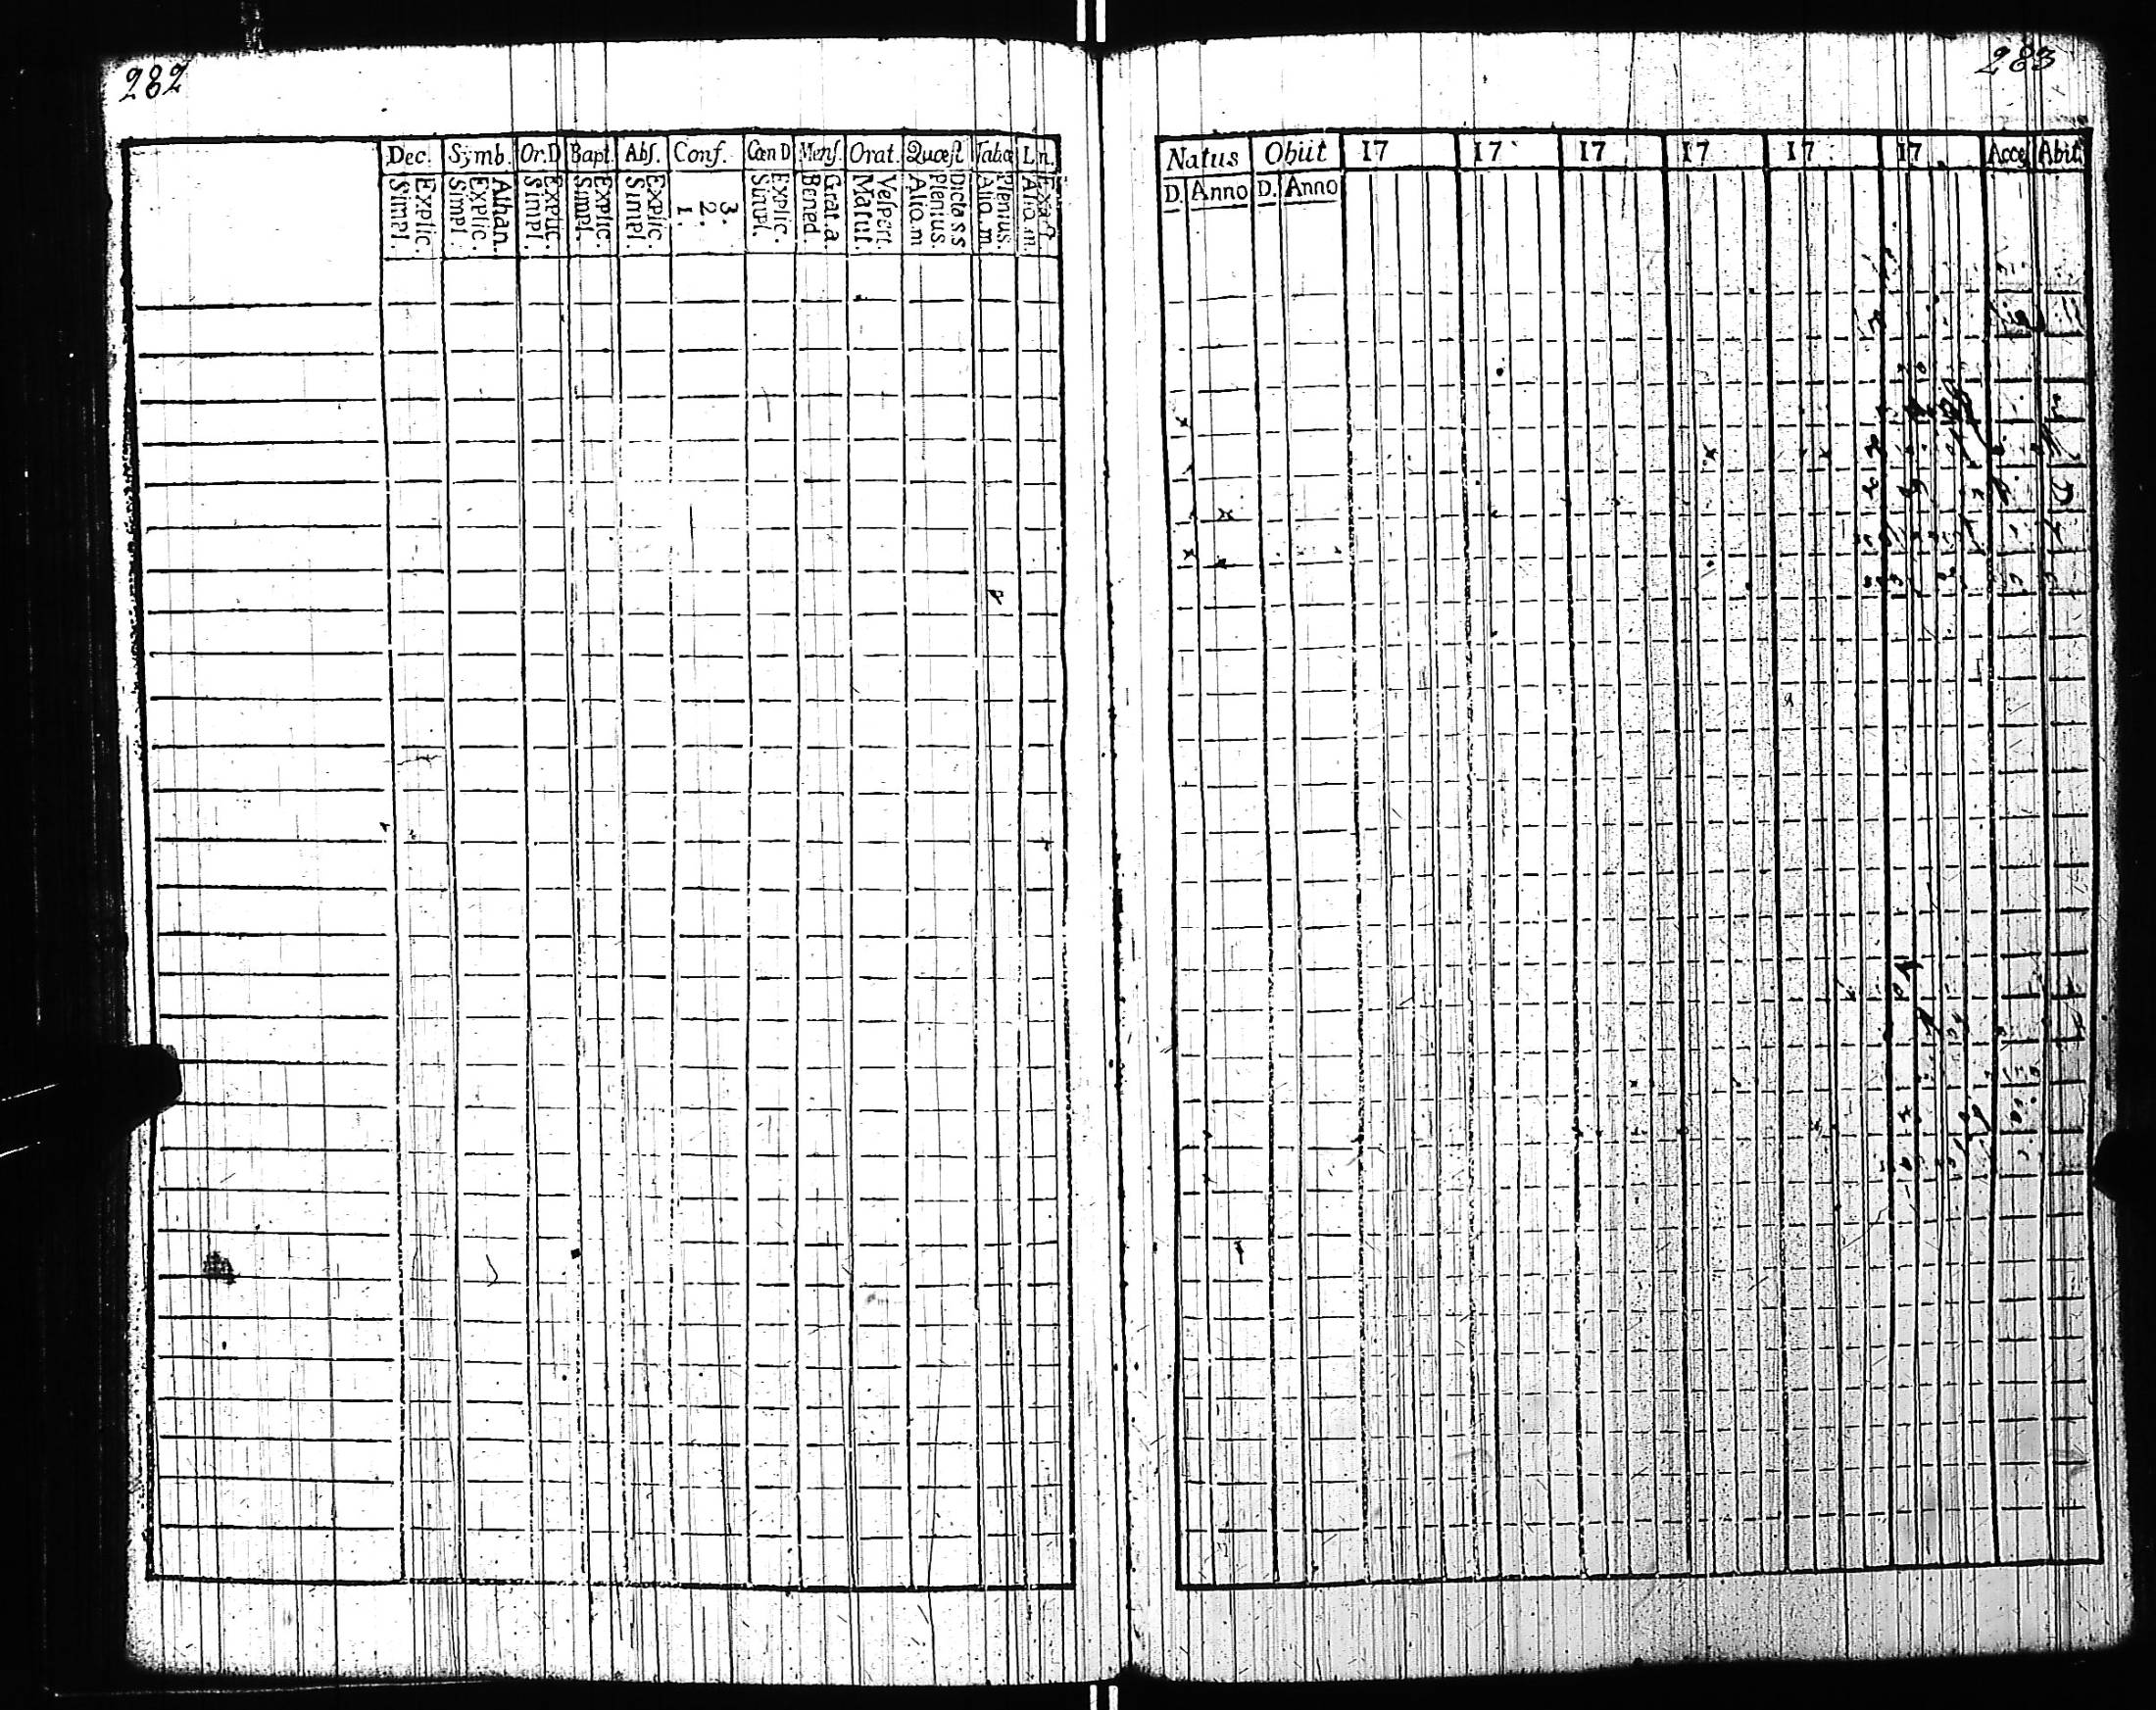 282
Dec. Symb. Or.D Bapt. Abs. Conf. Cœn D Mens. Orat. Quæst Tabæ L.n.
Simpl. Explic. Simpl. Explic. Athan. Simpl. Explic. Simpl. Explic. Simpl. Explic. 1. 2. 3. Simpl. Explic. Bened. Grat. a. Matut. Vespert. Alia. m Plenius. Dicta s s Alia. m. Plenius. Alia. m. Exact
283
Natus Obiit 17 17 17 17 17 17 Acces Abit
D. Anno D. Anno